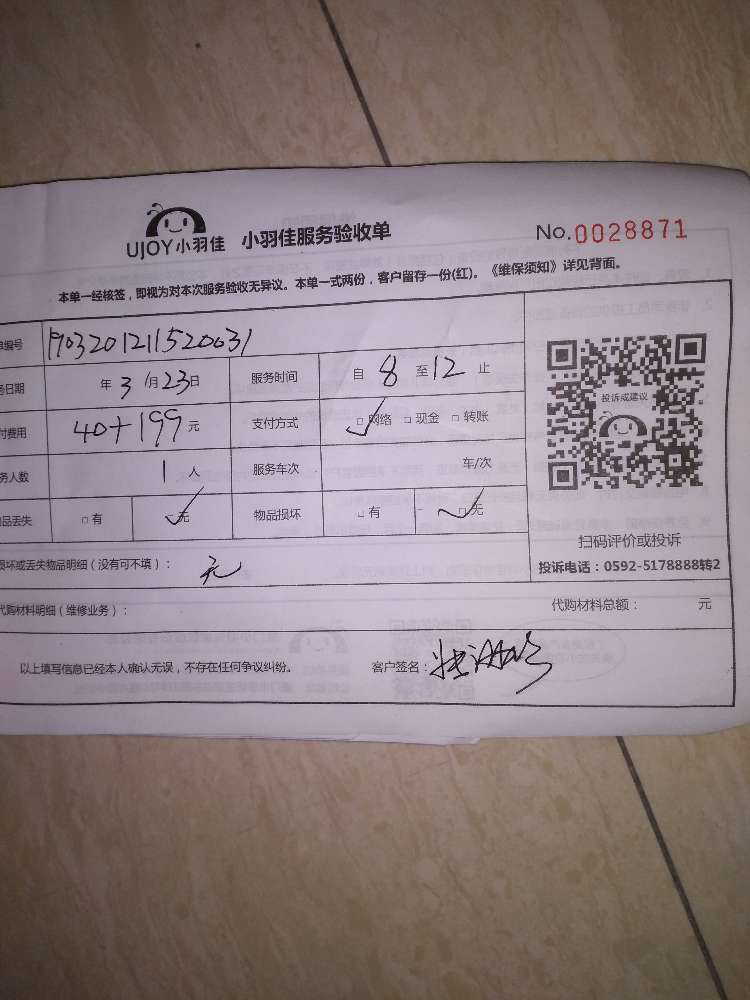 UJOY小羽佳 小羽佳服务验收单 No.0028871
本单一经核签，即视为对本次服务验收无异议。本单一式两份，客户留存一份(红)。《维保须知》详见背面。
编号 190320121152003​1
日期 年 3 月 23 日 服务时间 自 8 至 12 止
付费用 40+199 元 支付方式 □网络 □现金 □转账
务人数 1 人 服务车次 车/次
品丢失 □有 □无 物品损坏 □有 □无
投诉或建议
扫码评价或投诉
投诉电话：0592-5178888转2
损坏或丢失物品明细（没有可不填）： 无
代购材料明细（维修业务）： 代购材料总额： 元
以上填写信息已经本人确认无误，不存在任何争议纠纷。 客户签名：